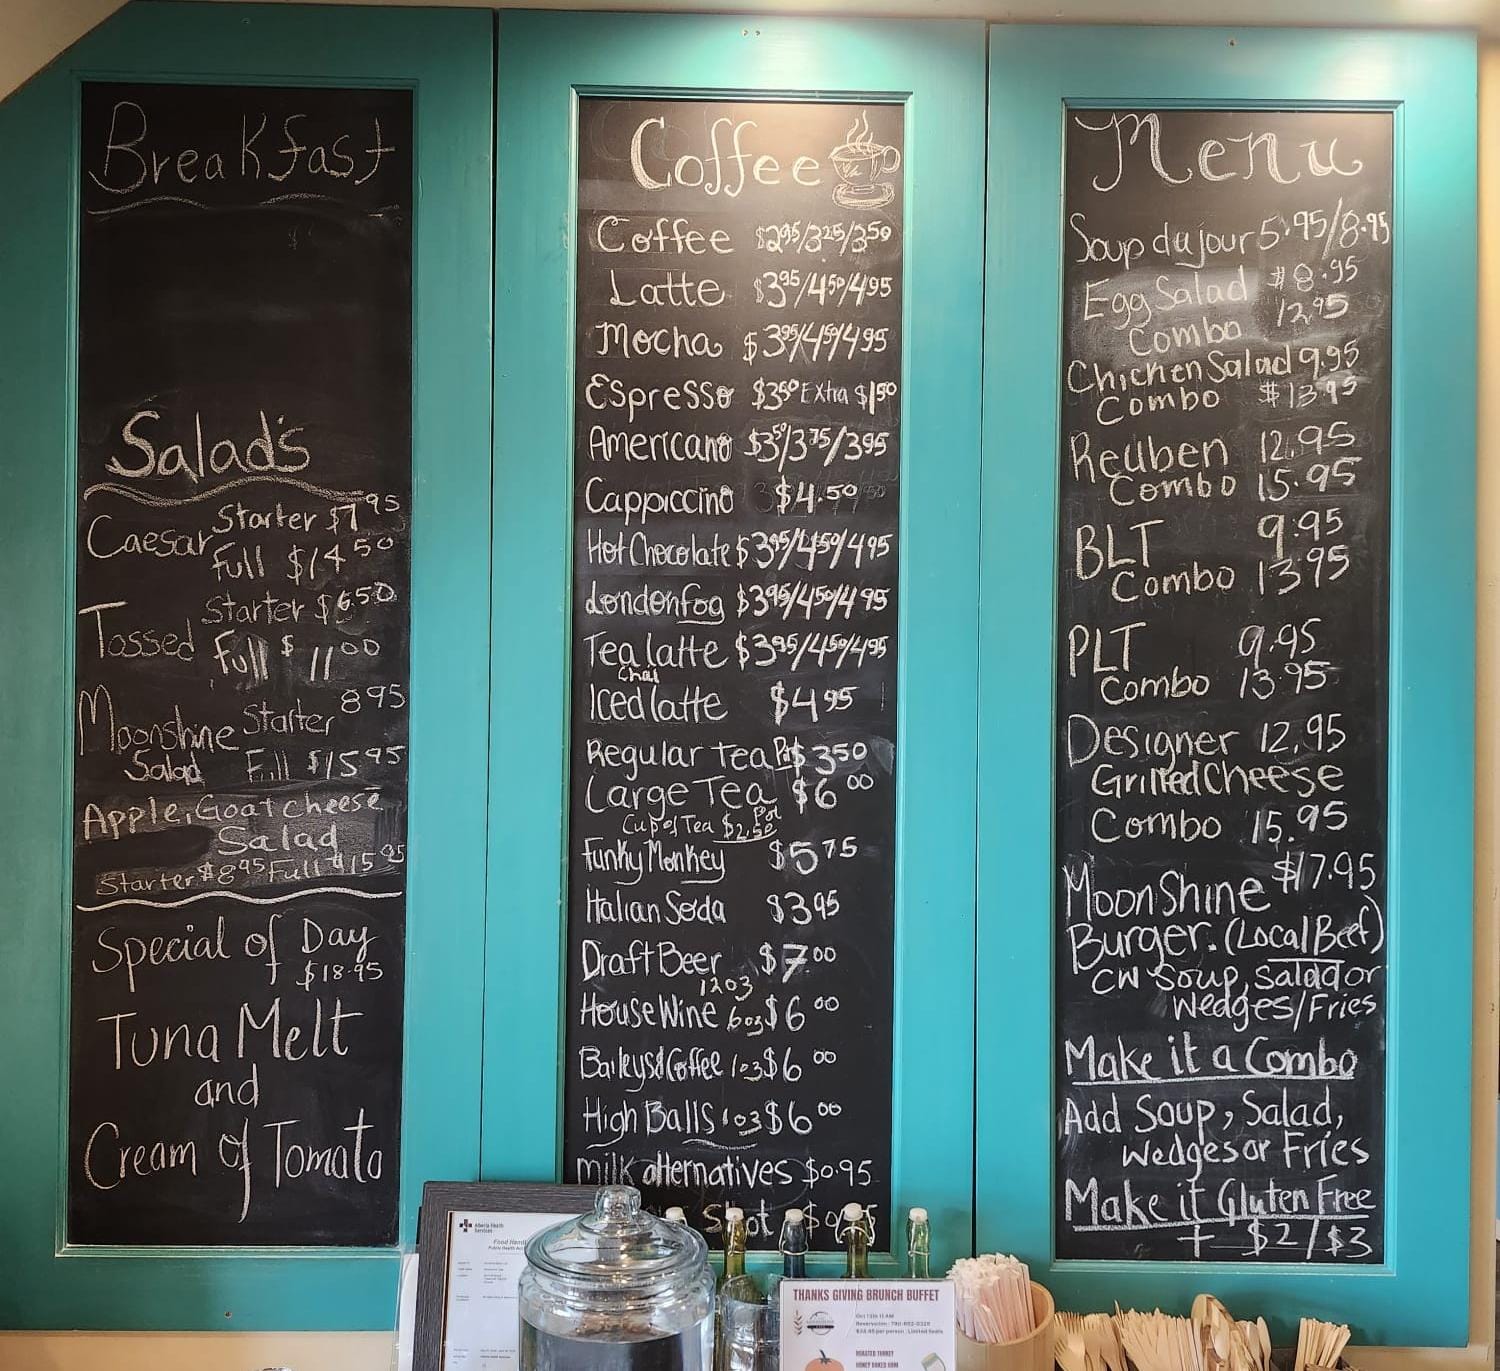 Breakfast
Salad's
Caesar Starter $7.95
Full $14.50
Tossed Starter $6.50
Full $11.00
Moonshine Starter 8.95
Salad Full $15.95
Apple, Goat cheese
Salad
Starter $8.95 Full $15.95
Special of Day
$18.95
Tuna Melt
and
Cream of Tomato
Coffee
Coffee $2.95/3.25/3.50
Latte $3.95/4.50/4.95
Mocha $3.95/4.50/4.95
Espresso $3.50 Extra $1.50
Americano $3.50/3.75/3.95
Cappiccino $4.50
Hot Chocolate $3.95/4.50/4.95
Londonfog $3.95/4.50/4.95
Tea latte $3.95/4.50/4.95
Chai
Iced latte $4.95
Regular Tea Pot $3.50
Large Tea $6.00
Pot
Cup of Tea $2.50
Funky Monkey $5.75
Italian Soda $3.95
Draft Beer $7.00
12oz
House Wine 6oz $6.00
Baileys&Coffee 1oz $6.00
High Balls 1oz $6.00
milk alternatives $0.95
Shot
Menu
Soup du jour 5.95/8.95
Egg Salad $8.95
Combo 12.95
Chicken Salad 9.95
Combo $13.95
Reuben 12.95
Combo 15.95
BLT 9.95
Combo 13.95
PLT 9.95
Combo 13.95
Designer 12.95
Grilled Cheese
Combo 15.95
MoonShine $17.95
Burger. (Local Beef)
CW Soup, Salad or
Wedges/Fries
Make it a Combo
Add Soup, Salad,
Wedges or Fries
Make it Gluten Free
+ $2/$3
Alberta Health
Services
THANKS GIVING BRUNCH BUFFET
ROASTED TURKEY
HONEY BAKED HAM